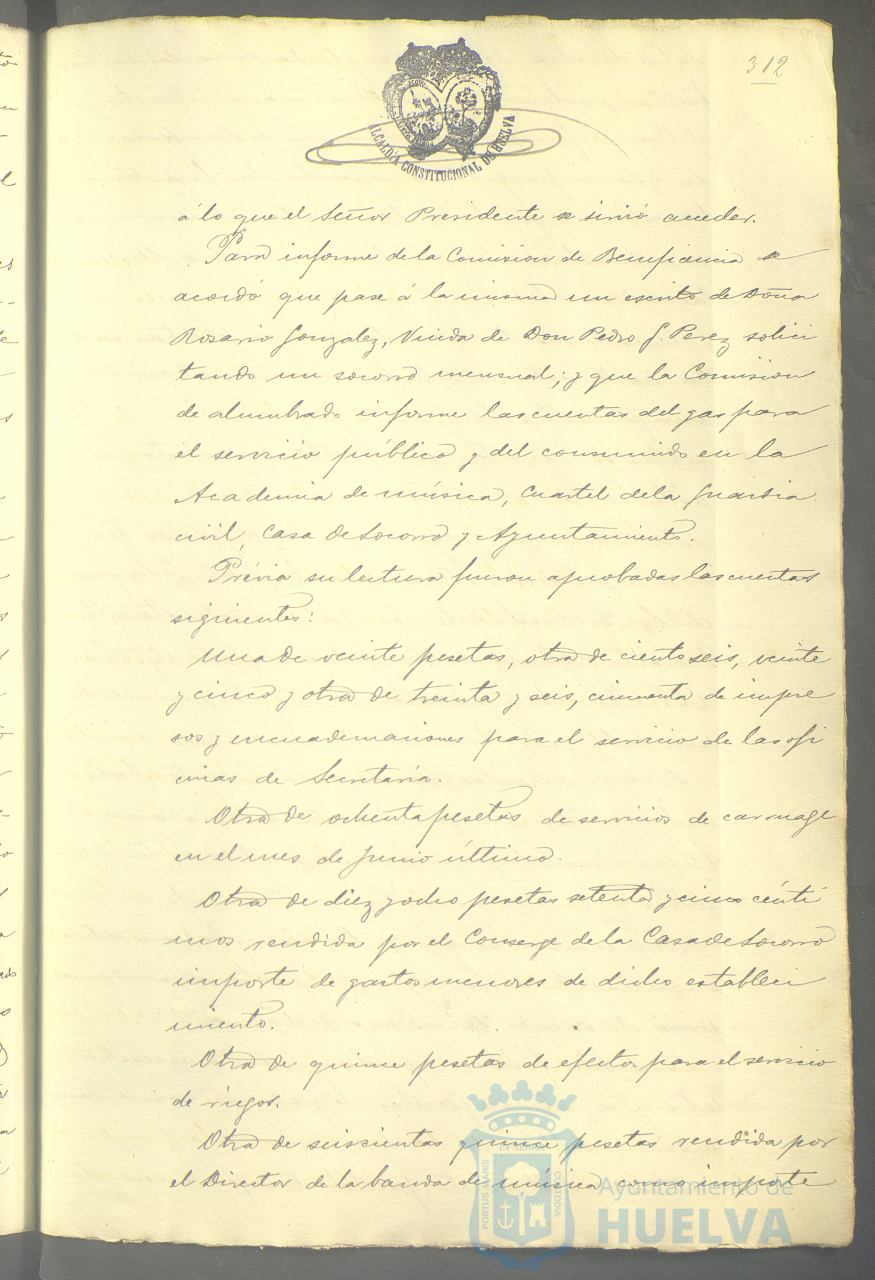 312
ALCALDÍA CONSTITUCIONAL DE HUELVA
á lo que el Señor Presidente se sirvió acceder.
Para informe de la Comision de Beneficencia se
acordó que pase á la misma un escrito de Doña
Rosario Gonzalez, Viuda de Don Pedro G. Perez solici
tando un socorro mensual; y que la Comision
de alumbrado informe las cuentas del gas para
el servicio público y del consumido en la
Academia de música, Cuartel de la Guardia
civil, Casa de Socorro y Ayuntamiento.
Prévia su lectura fueron aprobadas las cuentas
siguientes:
Una de veinte pesetas, otra de ciento seis, veinte
y cinco y otra de treinta y seis, cincuenta de impre
sos y encuadernaciones para el servicio de las ofi
cinas de Secretaría.
Otra de ochenta pesetas de servicios de carruage
en el mes de Junio último.
Otra de diez y ocho pesetas setenta y cinco cénti
mos rendida por el Conserge de la Casa de Socorro
importe de gastos menores de dicho estableci
miento.
Otra de quince pesetas de efectos para el servicio
de riegos.
Otra de seiscientas quince pesetas rendida por
el Director de la banda de música como importe
PORTUS MARIS ET TERRAE CUSTODIA
Ayuntamiento de
HUELVA